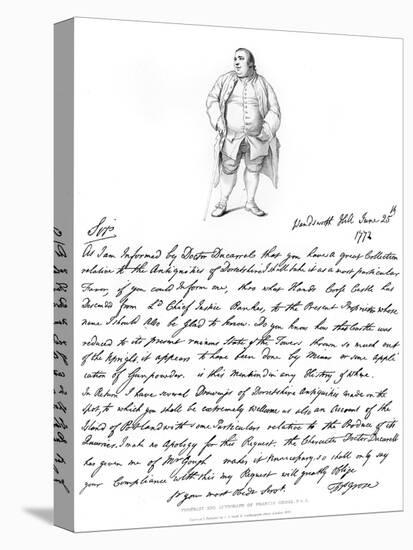 Wandsworth Hill June 25th
1772
Sir
As I am Informed by Doctor Ducarrel that you have a Great Collection
relative to the Antiquities of Dorsetshire I shall take it as a most particular
Favor, if you could Inform me, thro what Hands Corf Castle has
Descended from Ld Chief Justice Bankes, to the Present Proprietor whose
name I should also be glad to know. Do you know how this Castle was
reduced to its present ruinous State, of the Towers shewn so much out
of the upright, it appears to have been done by Mines or some appli
cation of Gunpowder. is this Mentioned in any History of
In Return I have several Drawings of Dorsetshire Antiquities made on the
Spot, to which you shall be extremely Wellcome as also an Account of the
Island of Portland with some Particulars relative to the Produce of its
Quarries. I make no Apology for this Request. the Character Doctor Ducarrel
has given me of Mr Gough makes it unnecessary, so shall only say
your Compliance with this my Request will greatly Oblige
Sr your most Obedt Servt.
F Grose
PORTRAIT AND AUTOGRAPH OF FRANCIS GROSE, F.S.A.